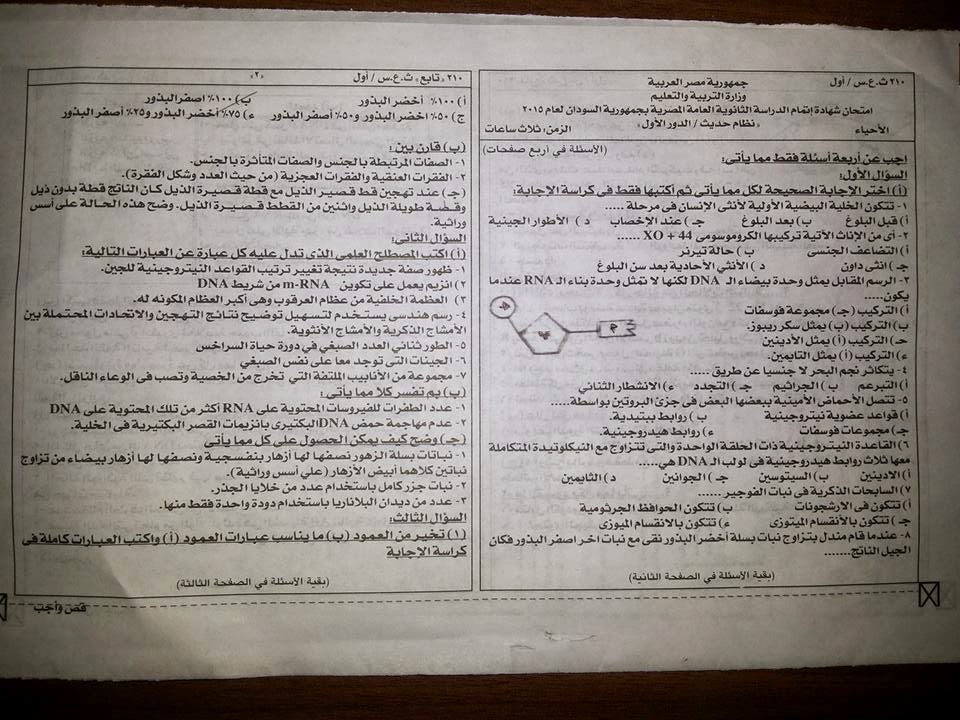 ٢١٠ ث.ع.س / أول
جمهورية مصر العربية
وزارة التربية والتعليم
امتحان شهادة إتمام الدراسة الثانوية العامة المصرية بجمهورية السودان لعام ٢٠١٥
الأحياء
« نظام حديث / الدور الأول »
الزمن : ثلاث ساعات
(الأسئلة في أربع صفحات)
اجب عن أربعة أسئلة فقط مما يأتى :
السؤال الأول:
(أ) اختر الإجابة الصحيحة لكل مما يأتى ثم أكتبها فقط فى كراسة الإجابة:
١- تتكون الخلية البيضية الأولية لأنثى الانسان فى مرحلة .....
أ) قبل البلوغ ب) بعد البلوغ جـ) عند الإخصاب د) الأطوار الجينية
٢- أى من الإناث الأتية تركيبها الكروموسومى 44 + XO ......
أ) التضاعف الجنسى ب) حالة تيرنر
جـ) انثى داون د) الأنثي الأحادية بعد سن البلوغ
٣- الرسم المقابل يمثل وحدة بيضاء الـ DNA لكنها لا تمثل وحدة بناء الـ RNA عندما
يكون.....
أ) التركيب (جـ) مجموعة فوسفات
ب) التركيب (ب) يمثل سكر ريبوز.
حـ) التركيب (أ) يمثل الأدينين
ء) التركيب (أ) يمثل التايمين.
٤- يتكاثر نجم البحر لا جنسيا عن طريق .....
أ) التبرعم ب) الجراثيم جـ) التجدد ء) الانشطار الثنائي
٥- تتصل الأحماض الأمينية ببعضها البعض فى جزئ البروتين بواسطة.....
أ) قواعد عضوية نيتروجينية ب) روابط ببتيدية.
جـ) مجموعات فوسفات ء) روابط هيدروجينية.
٦) القاعدة النيتروجينية ذات الحلقة الواحدة والتى تتزاوج مع النيكلوتيدة المتكاملة
معها ثلاث روابط هيدروجينية فى لولب الـ DNA هي.....
أ) الادينين ب) السيتوسين جـ) الجوانين د) الثايمين
٧) السابحات الذكرية فى نبات الفوجير ......
أ) تتكون فى الارشجونات ب) تتكون الحوافظ الجرثومية
جـ) تتكون بالأنقسام الميتوزى ء) تتكون بالانقسام الميوزى
٨- عندما قام مندل بتزاوج نبات بسلة أخضر البذور نقى مع نبات اخر اصفر البذور فكان
الجيل الناتج.......
(بقية الأسئلة في الصفحة الثانية)
٢١٠ « تابع » ث.ع.س / أول
«٢»
أ) ١٠٠٪ أخضر البذور ب) ١٠٠٪ اصفر البذور
ج) ٥٠٪ اخضر البذور و٥٠٪ أصفر البذور ء) ٧٥٪ أخضر البذور و٢٥٪ أصفر البذور
(ب) قارن بين :
١- الصفات المرتبطة بالجنس والصفات المتأثرة بالجنس.
٢- الفقرات العنقية والفقرات العجزية (من حيث العدد وشكل الفقرة).
(جـ) عند تهجين قط قصير الذيل مع قطة قصيرة الذيل كان الناتج قطة بدون ذيل
وقطة طويلة الذيل واثنين من القطط قصيرة الذيل. وضح هذه الحالة على أسس
وراثية.
السؤال الثانى:
(أ) اكتب المصطلح العلمى الذى تدل عليه كل عبارة عن العبارات التالية:
١- ظهور صفة جديدة نتيجة تغيير ترتيب القواعد النيتروجينية للجين.
٢- انزيم يعمل على تكوين m-RNA من شريط DNA
٣) العظمة الخلفية من عظام العرقوب وهى أكبر العظام المكونه له.
٤- رسم هندسى يستخدم لتسهيل توضيح نتائج التهجين والاتحادات المحتملة بين
الأمشاج الذكرية والأمشاج الأنثوية.
٥- الطور ثنائي العدد الصبغي في دورة حياة السراخس
٦- الجينات التى توجد معا على نفس الصبغي
٧- مجموعة من الأنابيب الملتفة التي تخرج من الخصية وتصب فى الوعاء الناقل.
(ب) بم تفسر كلا مما يأتى :
١- عدد الطفرات للفيروسات المحتوية على RNA أكثر من تلك المحتوية على DNA
٢- عدم مهاجمة حمض DNA البكتيرى بانزيمات القصر البكتيرية فى الخلية.
(جـ) وضح كيف يمكن الحصول على كل مما يأتى
١- نباتات بسلة الزهور نصفها لها أزهار بنفسجية ونصفها لها أزهار بيضاء من تزاوج
نباتين كلاهما أبيض الأزهار (على أسس وراثية).
٢- نبات جزر كامل باستخدام عدد من خلايا الجذر.
٣- عدد من ديدان البلاناريا باستخدام دودة واحدة فقط منها.
السؤال الثالث:
(١) تخير من العمود (ب) ما يناسب عبارات العمود (أ) واكتب العبارات كاملة فى
كراسة الإجابة
(بقية الأسئلة في الصفحة الثالثة)